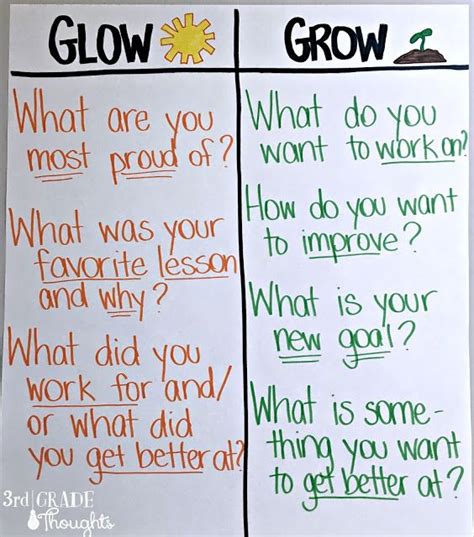 GLOW
What are you
most proud of?
What was your
favorite lesson
and why?
What did you
work for and/
or what did
you get better at?
GROW
What do you
want to work on?
How do you want
to improve?
What is your
new goal?
What is some-
thing you want
to get better at?
3rd GRADE
Thoughts